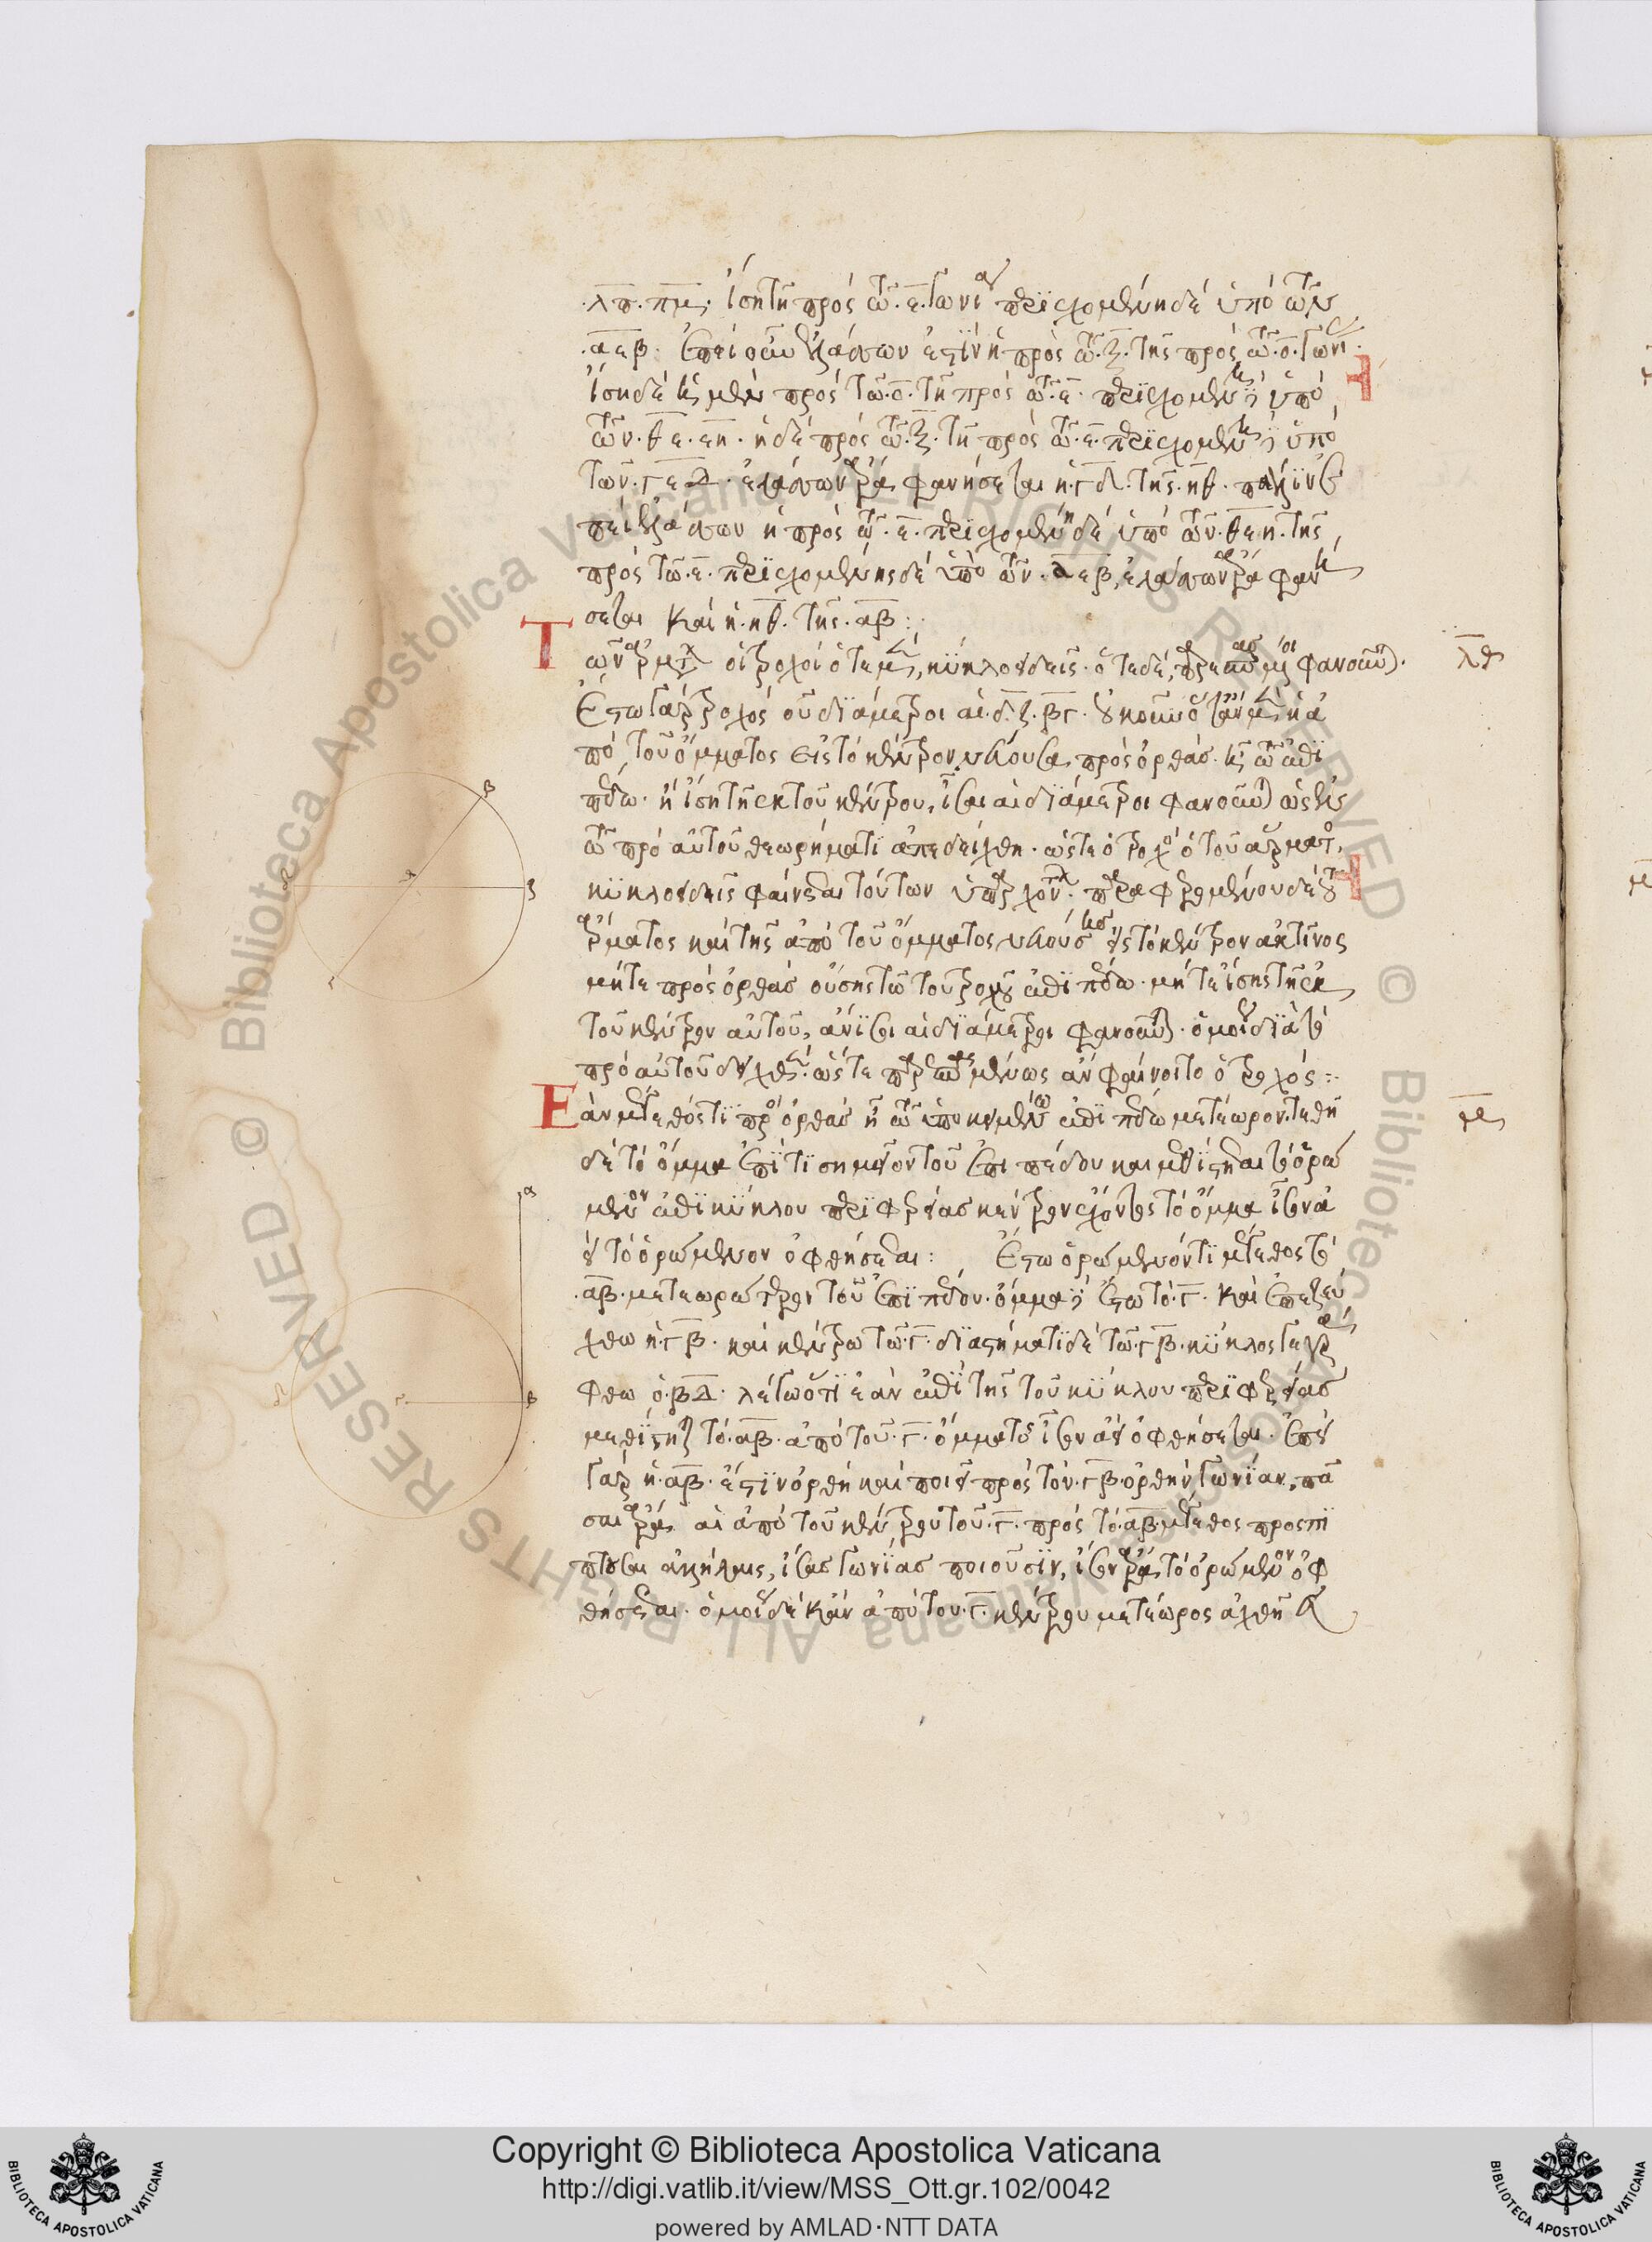 ἴση τῇ πρὸς τῷ · ε · γωνίᾳ περιεχομένη δὲ ὑπὸ τῶν
· α ε β · ἐπεὶ οὖν ἐλάττων ἐστὶν ἡ πρὸς τῷ · ξ · τῆς πρὸς τῷ · ο · γωνί
ἴση δὲ ἡ μὲν πρὸς τῷ · ο · τῇ πρὸς τῷ · ε · περιεχομένη ὑπὸ
τῶν · θ ε · ε η · ἡ δὲ πρὸς τῷ · ξ · τῇ πρὸς τῷ · ε · περιεχομένη ὑπὸ
τῶν · γ ε δ · ἐλάττων ἄρα φανήσεται ἡ · γ δ · τῆς · η θ · πάλιν ἐ
πεὶ ἐλάττων ἡ πρὸς τῷ · ε · περιεχομένη δὲ ὑπὸ τῶν · θ ε η · τῆς
πρὸς τῷ · ε · περιεχομένης δὲ ὑπὸ τῶν · α ε β, ἐλάττων ἄρα φανή
σεται καὶ ἡ · η θ · τῆς · α β :
Τῶν ἁρμάτων οἱ τροχοὶ ὁτὲ μὲν, κυκλοειδεῖς · ὁτὲ δὲ, παρεσπασμένοι φανοῦνται ·
λθ
Ἔστω γὰρ τροχὸς οὗ διάμετροι αἱ · δ ζ · β γ · οὐκοῦν ὅταν μὲν ἡ ἀ
πὸ τοῦ ὄμματος εἰς τὸ κέντρον νεύουσα πρὸς ὀρθὰς ἦ τῷ ἐπι
πέδῳ · ἢ ἴση τῇ ἐκ τοῦ κέντρου, ἴσαι αἱ διάμετροι φανοῦνται ὡς ἐν
τῷ πρὸ αὐτοῦ θεωρήματι ἀπεδείχθη · ὥστε ὁ τροχὸς ὁ τοῦ ἅρματος
κυκλοειδεῖς φαίνεται τούτων ὑπαρχόντων · παραφερομένου δὲ τοῦ
ἅρματος καὶ τῆς ἀπὸ τοῦ ὄμματος νευούσης εἰς τὸ κέντρον ἀκτῖνος
μήτε πρὸς ὀρθὰς οὔσης τῷ τοῦ τροχοῦ ἐπιπέδῳ · μήτε ἴσης τῇ ἐκ
τοῦ κέντρου αὐτοῦ, ἄνισοι αἱ διάμετροι φανοῦνται · ὁμοίως διὰ τὸ
πρὸ αὐτοῦ δειχθέν · ὥστε παρεσπασμένως ἂν φαίνοιτο ὁ τροχός :
Ἐὰν μέγεθός τι πρὸς ὀρθὰς ἦ τῷ ὑποκειμένῳ ἐπιπέδῳ μετέωρον · τεθῆ
με
δὲ τὸ ὄμμα ἐπί τι σημεῖον τοῦ ἐπιπέδου καὶ μεθίσταται τὸ ὁρώ
μενον ἐπὶ κύκλου περιφερείας κέντρον ἔχοντος τὸ ὄμμα ἴσον ἀ
εὶ τὸ ὁρώμενον ὀφθήσεται : Ἔστω ὁρώμενόν τι μέγεθος τὸ
· α β · μετεωρότερον τοῦ ἐπιπέδου · ὄμμα δὲ ἔστω τὸ · γ · καὶ ἐπεζεύ
χθω ἡ · γ β · καὶ κέντρῳ τῷ · γ · διαστήματι δὲ τῷ · γ β · κύκλος γεγρά
φθω ὁ · β δ · λέγω ὅτι ἐὰν ἐπὶ τῆς τοῦ κύκλου περιφερείας
μεθίστηται τὸ · α β · ἀπὸ τοῦ · γ · ὄμματος ἴσον ἀεὶ ὀφθήσεται · ἐπεὶ
γὰρ ἡ · α β · ἐστὶν ὀρθὴ καὶ ποιεῖ πρὸς τὸν · γ β · ὀρθὴν γωνίαν, πᾶ
σαι ἄρα αἱ ἀπὸ τοῦ κέντρου τοῦ · γ · πρὸς τὸ · α β · μέγεθος προσπί
πτουσαι ἀκτῖνες, ἴσας γωνίας ποιοῦσιν, ἴσον ἄρα τὸ ὁρώμενον ὀφ
θήσεται · ὁμοίως δὲ κἂν ἀπὸ τοῦ · γ · κέντρου μετέωρος ἀχθῆ
Copyright © Biblioteca Apostolica Vaticana
http://digi.vatlib.it/view/MSS_Ott.gr.102/0042
powered by AMLAD·NTT DATA
BIBLIOTECA APOSTOLICA VATICANA
BIBLIOTECA APOSTOLICA VATICANA